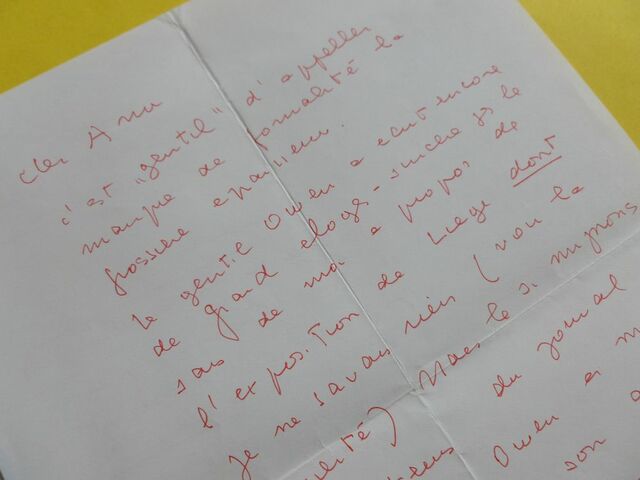 Cher Ami
c'est "gentil" d'appeler
manque de formalité la
grossière
Le gentil Owen a écrit encore
de grand éloge - sincère je le
sais de moi a propos de
l'exposition de Liege dont
je ne savais rien (vou la
) Mais le si
du journal
Owen a m
son